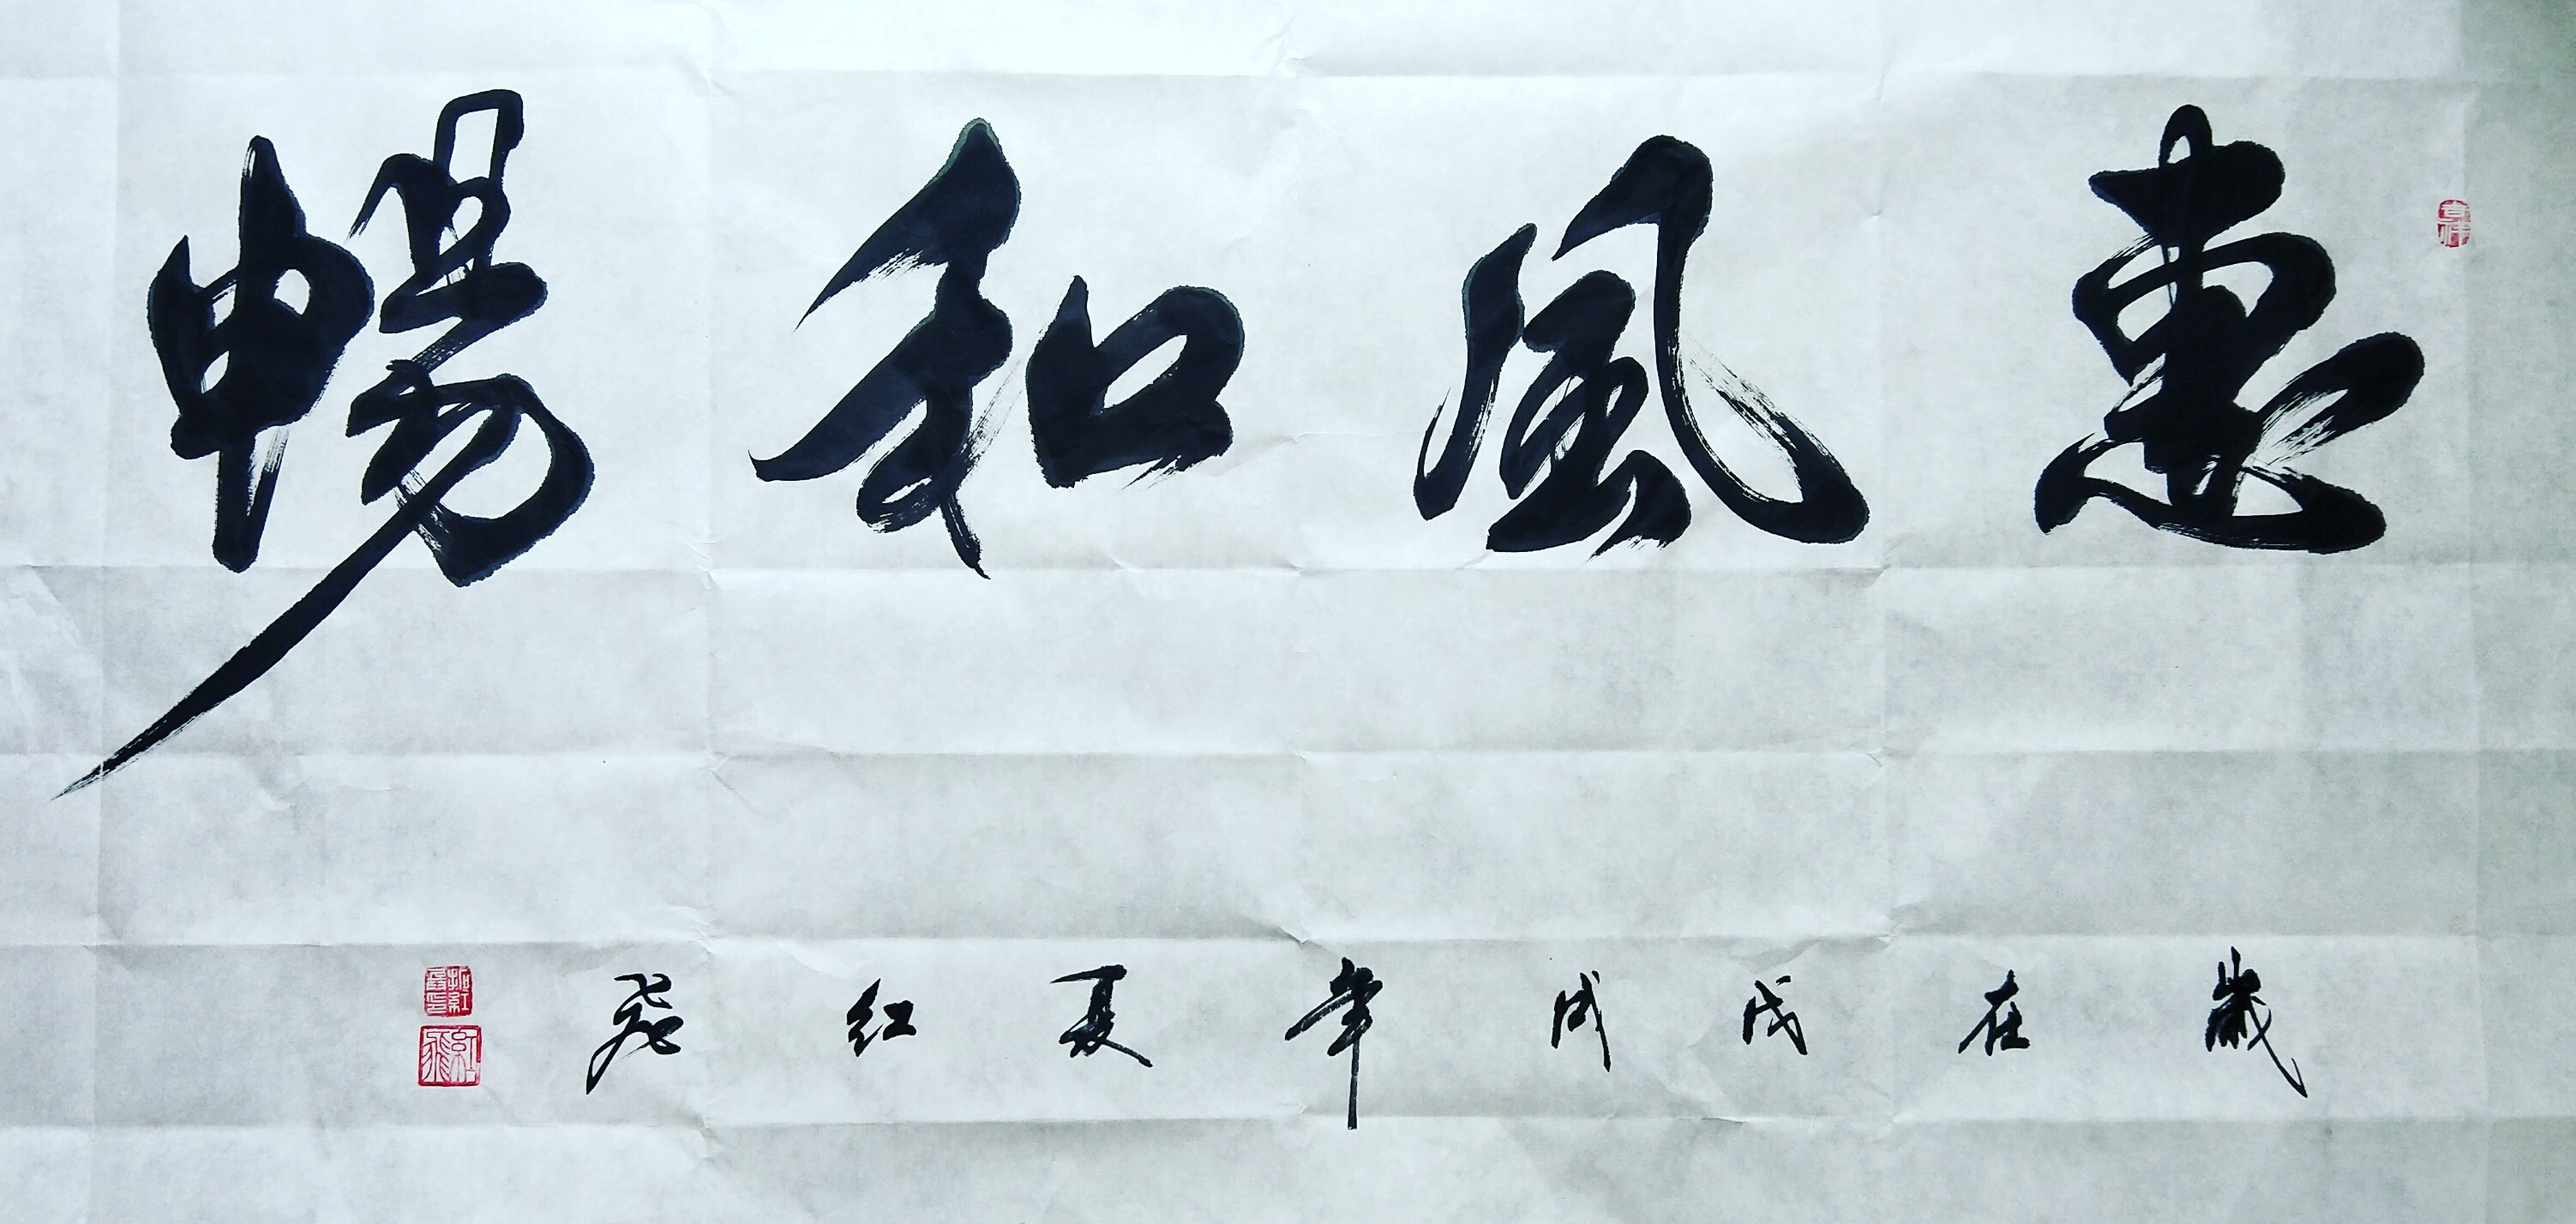 惠風和暢
歲在戊戌年夏紅飛